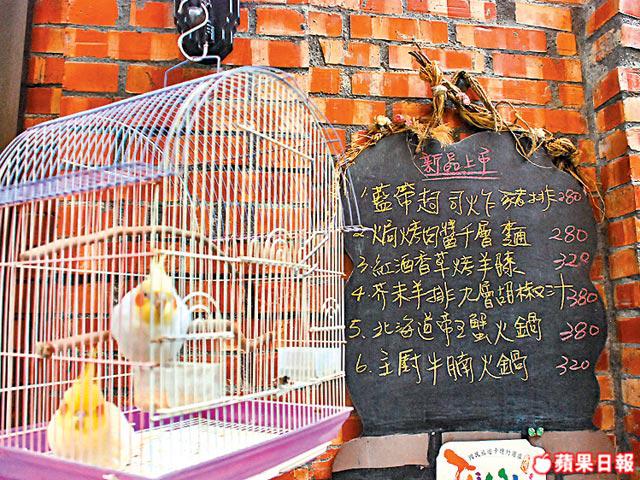 新品上市
1.藍帶起司炸豬排280
2.焗烤肉醬千層麵 280
3.紅酒香草烤羊膝 320
4.芥末羊排九層胡椒汁380
5.北海道帝王蟹火鍋 380
6.主廚牛腩火鍋 320
蘋果日報